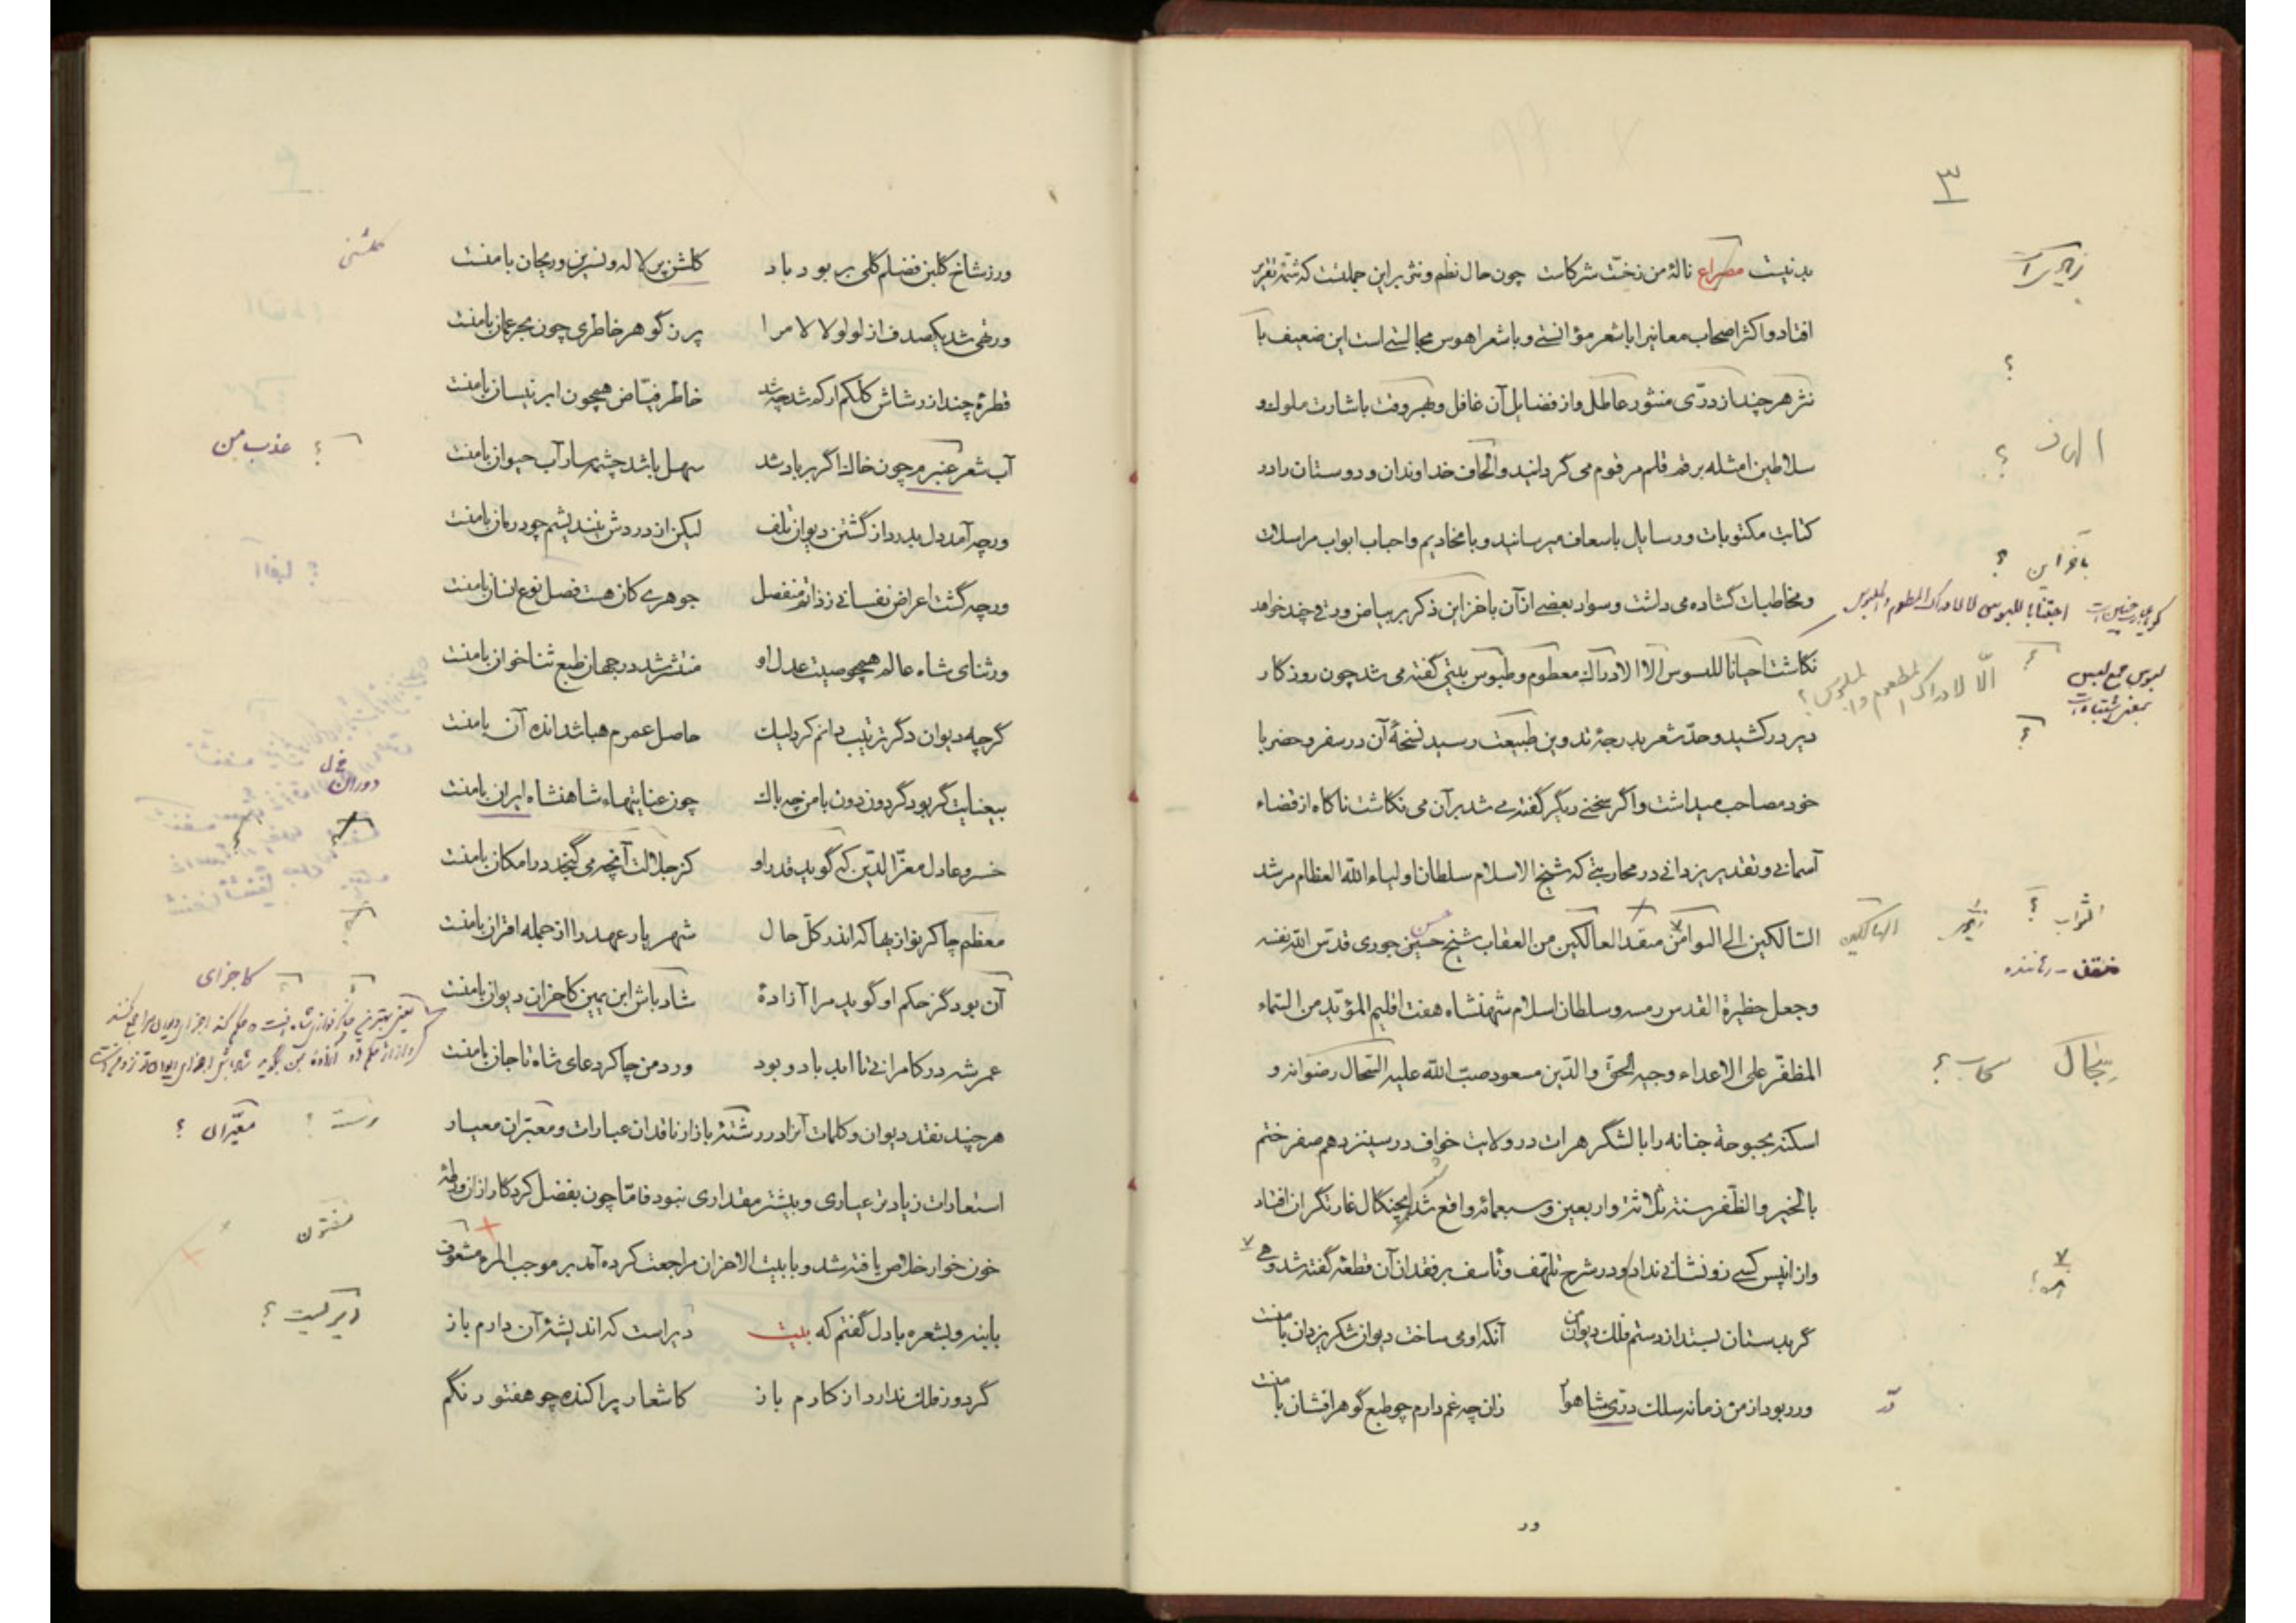 ۳
بدنیست مصراع نالهٔ من زخت شرکاست چون حال نظم و نثر براین جملتست که شمّهٔ تقریر
افتاد و اکثر اصحاب معانیرا باشعر مؤانستی و باشعرا هوس مجالستی است این ضعیف با
نثر هرچند از درّی منثور عاطل و از فضایل آن غافل و بهروقت باشارت ملوک و
سلاطین امثله برقم قلم مرقوم می کردانید و الحاف خداوندان و دوستان را در
کتابت مکتوبات و رسایل باسعاف میرسانید و با مخادیم و احباب ابواب مراسلات
و مخاطبات کشاده می داشت و سواد بعضی از آن باخر این ذکر بر بیاض ورقی چند خواهد
نکاشت احیانا للبسوس الا الادراک معطوم و طبوس بیتی گفته می شد چون روزکار
دیر درکشید و حدّ شعر بدرجهٔ تدوین طبیعت رسید نسخهٔ آن در سفر و حضر با
خود مصاحب میداشت و اگر سخنی دیگر گفته می شد بر آن می نکاشت ناکاه از قضاء
آسمانی و تقدیر یزدانی در محاربتی که شیخ الاسلام سلطان اولیاء الله العظام مرشد
السّالکین الی الـثوامن منقد العالکین من العقاب شیخ حسین جوری قدس الله نفسه
وجعل حظیرة القدس رمسه و سلطان اسلام شهنشاه هفت اقلیم المؤیّد من السّماء
المظفّر علی الاعداء وجیه الحق والدّین مسعود صبّ الله علیه السّحال رضوانه و
اسکنه بحبوحة جنانه را با لشگر هرات در ولایت خواف در سیزدهم صفر ختم
بالخیر والظّفر سنته ثلاثة و اربعین و سبعمائه واقع شد بچنکال غارتگران افتاد
و از اپس کسی زو نشانی نداد و در شرح تلهّف و تأسف بر فقدان آن قطعه گفته شد و هی
گر بدستان بستد از دستم فلک دیوان من آنکه او می ساخت دیوان شکر یزدان با منست
ور ربود از من زمانه سلک درّی شاهوار زان چه غم دارم چو طبع گوهر افشان با منست
ور
زیر است
؟
؟
بآخر این ؟
الّا لادراک المطعوم والملبوس ؟
لبوس جمع لبس
؟
التراب ؟
الهالکین
منقذ - رهاننده
سحاب ؟
در
ورز شاخ گلبن فضلم گلی بر بود باد گلشن پر لاله و نسرین و ریحان با منست
ور تهی شد یکصدف از لولو لالا مرا پر ز گوهر خاطری چون بحر عمان با منست
قطرهٔ چند از رشاش کلکم ار که شد چه شد خاطر فیّاض همچون ابر نیسان با منست
آب شعر عنبرم چون خاک اگر بر باد شد سهل باشد چشمه سار آب حیوان با منست
ورچه آمد دل بدرد از گشتن دیوان تلف لیکن از دردش نیندیشم چو درمان با منست
ورچه گشت اعراض نفسانی ز ذاتم منفصل جوهری کان هست فصل نوع انسان با منست
ور ثنای شاه عالم همچو صیت عدل او منتشر شد در جهان طبع ثنا خوان با منست
گرچه دیوان دگر ترتیب دانم کرد لیک حاصل عمرم هبا شد انده آن با منست
بیعنایت گر بود گردون دون با من چه باک چون عنایتهاء شاهنشاه ایران با منست
خسرو عادل معزّ الدّین که گوید قدر او کز جلالت آنچه می گنجد در امکان با منست
معظم چاکر نوازیها که اندر کلّ حال شهریار عهد را از جمله اقران با منست
آن بود گز حکم او گوید مرا آزادهٔ شاد باش ابن یمین کاجزان دیوان با منست
عمر شه در کامرانی تا ابد باد و بود ورد من چاکر دعای شاه تا جان با منست
هرچند نقد دیوان و کلمات آنرا در رشتهٔ بازار ناقدان عبارات و معبّران معیار
استعارات زیادتر عیاری و بیشتر مقداری نبود فامّا چون بفضل کردکار از ان ورطهٔ
خون خوار خلاص یافته شد و با بیت الاحزان مراجعت کرده آمد بر موجب المرء مشعوف
بابنه و بشعره با دل گفتم که بیت دیراست که اندیشهٔ آن دارم باز
گر دور فلک ندارد از کارم باز کاشعار پراکنده چو هفتورنگم
گلشنی
؟ عذب من
دوران
کاجزای
معیّران ؟
مفتون
دیر گیست ؟